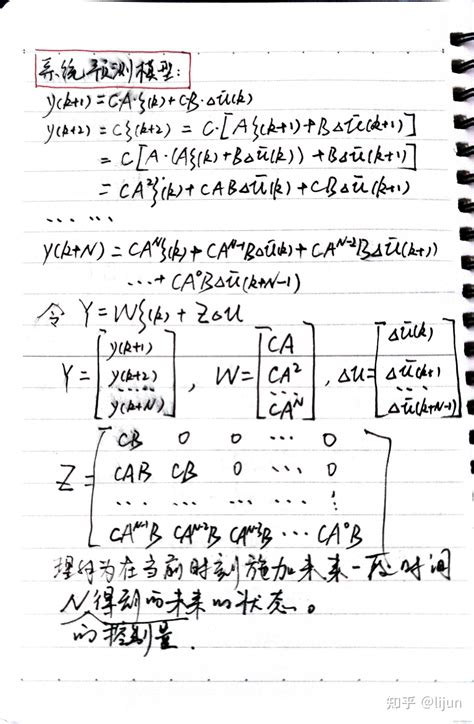 系统预测模型:
y(k+1)=CA·ξ(k)+CB·Δū(k)
y(k+2)=Cξ(k+2)=C·[Aξ(k+1)+BΔū(k+1)]
=C[A·(Aξ(k)+BΔū(k))+BΔū(k+1)]
=CA²ξ(k)+CABΔū(k)+CBΔū(k+1)
... ...
y(k+N)=CA^Nξ(k)+CA^{N-1}BΔū(k)+CA^{N-2}BΔū(k+1)
...+CA⁰BΔū(k+N-1)
令 Y=Wξ(k)+ZΔu
Y=[y(k+1) y(k+2) .... y(k+N)], W=[CA CA² ... CA^N], Δu=[Δū(k) Δū(k+1) .... Δū(k+N-1)]
Z=[CB 0 0 ... 0
CAB CB 0 ... 0
... ... ... ... ⋮
CA^{N-1}B CA^{N-2}B CA^{N-3}B ... CA⁰B]
理解为在当前时刻施加未来一段时间
N得到的未来的状态。
的控制量.
知乎 @lijun